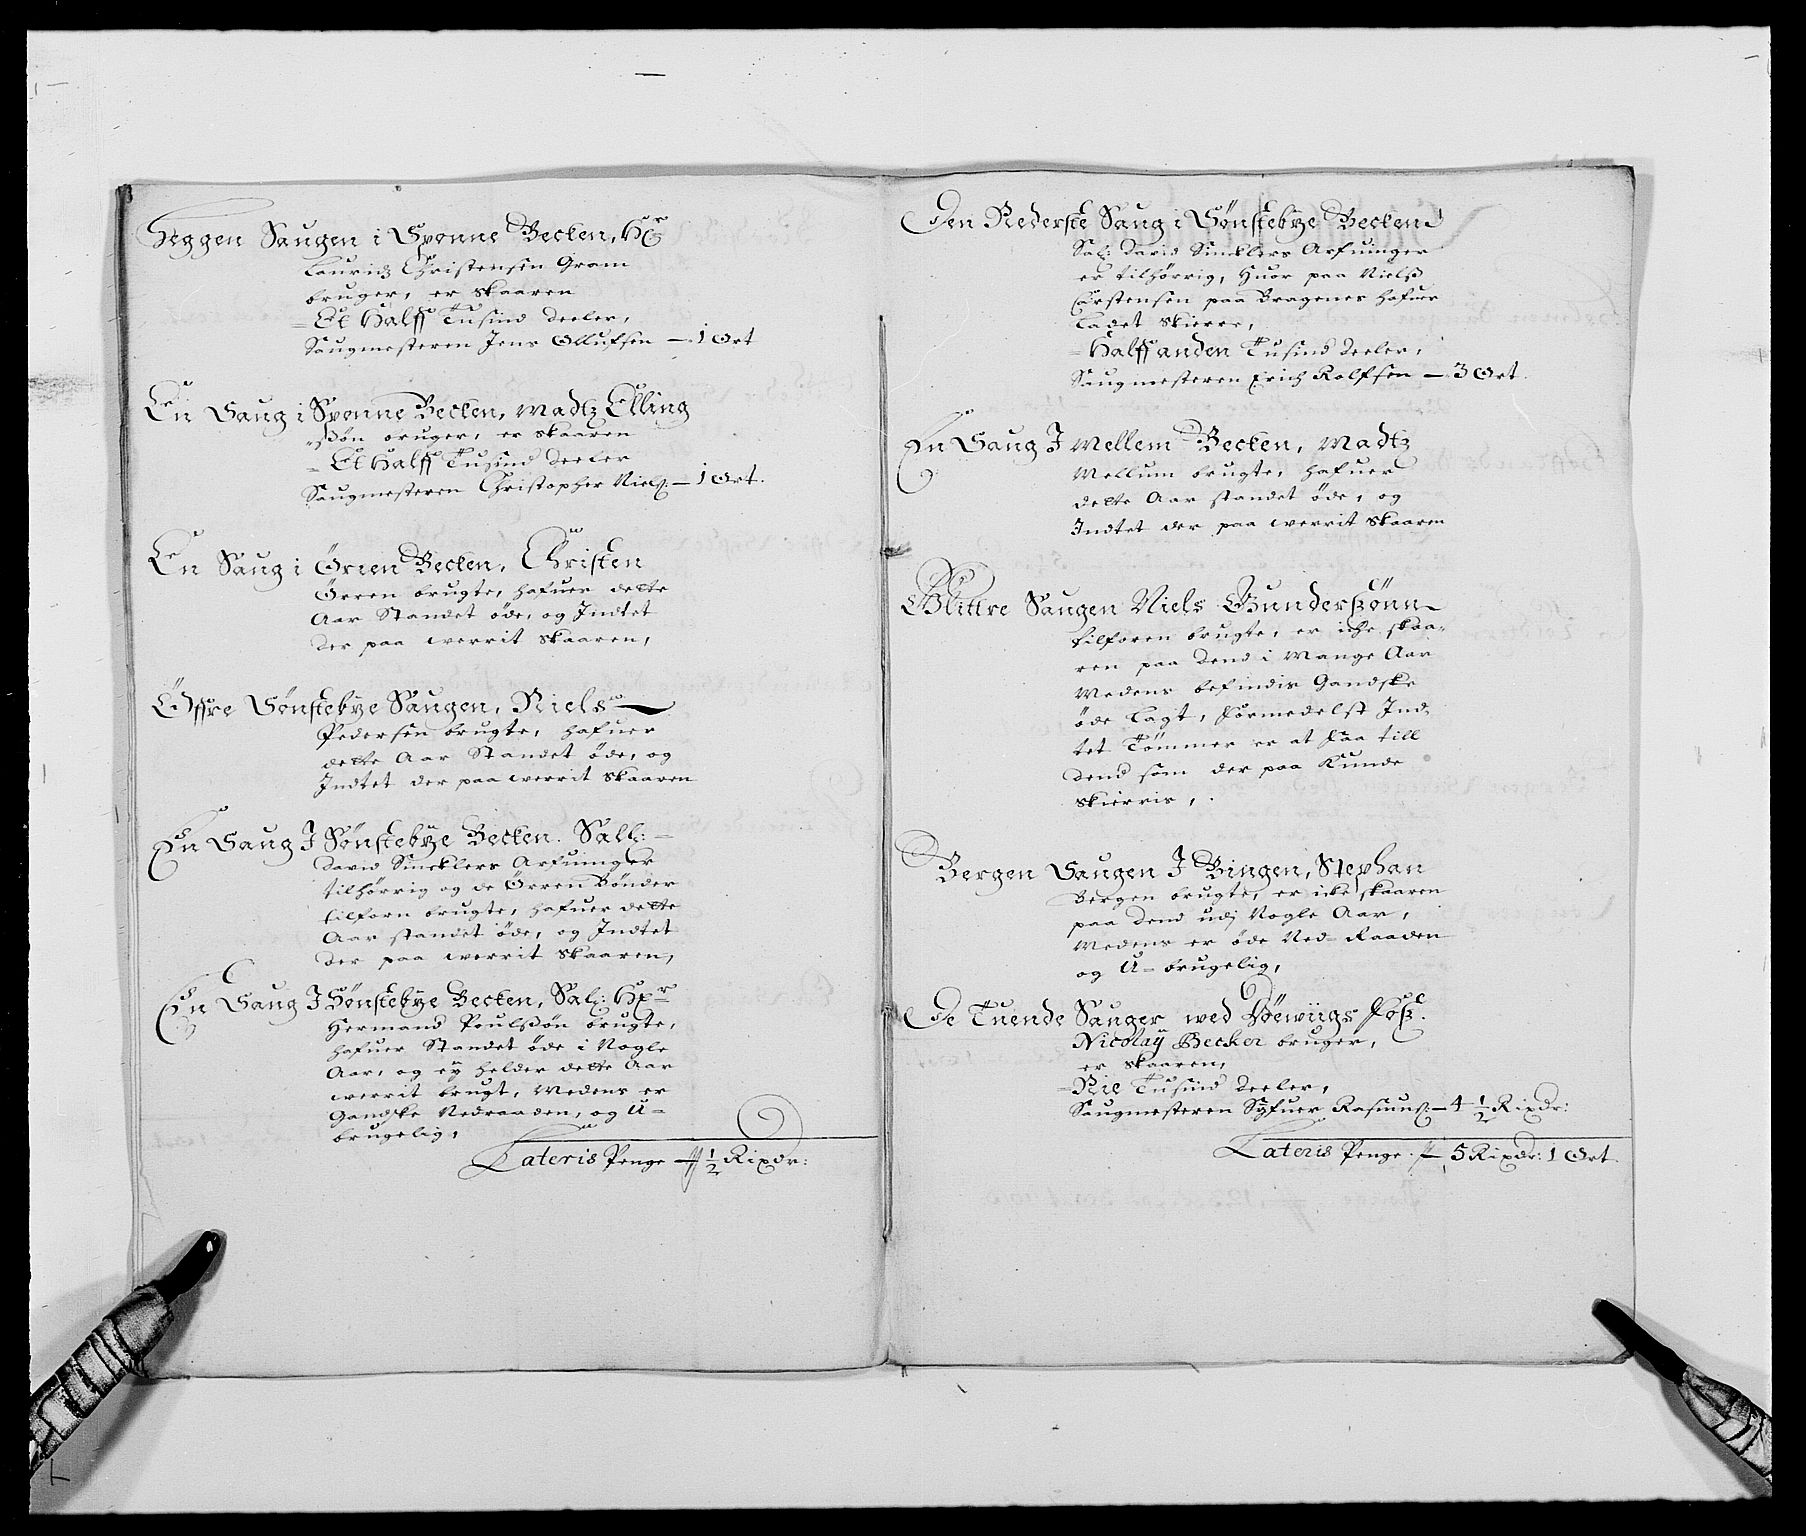 Heggen Saugen i Sponne Becken, Hr
Lauridz Christensen Gram
bruger, er skaaren
Et Halff Tusind Deeler,
Saugmesteren Jens Olluffsen — 1 Ort
En Saug i Sponne Becken, Madtz Elling
ssøn bruger, er skaaren
Et Halff Tusind Deeler
Saugmesteren Christopher Niels: — 1 Ort.
En Saug i Ørren Becken, Christen
Ørren brugte, hafuer dette
Aar Standet øde, og Indtet
der paa werrit skaaren,
Øffre Sønstebye Saugen, Niels
Pedersen brugte, hafuer
dette Aar Standet øde, og
Indtet der paa werrit skaaren
En Saug I Sønstebye Becken. Sall:
David Sincklers Arfuinger
tilhørrig og de Ørren Bønder
tilforn brugte, hafuer dette
Aar standet øde, og Indtet
der paa werrit skaaren,
En Saug I Sønstebye Becken, Sal: Hr
Hermand Poulssøn brugte,
hafuer Standet øde i Nogle
Aar, og ey helder dette Aar
werrit brugt, Medens er
Gandske Nedraaden, og U-
brugelig,
Lateris Penge — ½ Rixdr:
Den Nederste Saug i Sønstebye Becken
Sal: David Sincklers Arfuinger
er tilhørrig, Huor paa Nielss
Carstensen paa Bragenes hafuer
Ladet skierre,
Halff anden Tusind Deeler,
Saugmesteren Erich Rolfsen — 3 Ort.
En Saug I Mellem Becken, Madtz
Mellum brugte, hafuer
dette Aar standet øde, og
Indtet der paa werrit skaaren
Glittre Saugen Niels Gunderssønn
tilforen brugte, er iche skaa-
ren paa dend i Mange Aar
Medens befindis Gandske
øde Lagt, formedelst Ind-
tet Tømmer er at faa till
dend som der paa Kunde
skierris,
Bergen Saugen I Bingen, Stephan
Bergen brugte, er icke skaaren
paa dend udj Nogle Aar,
Medens er øde Ned-Raaden
og U-brugelig,
De Tuende Sauger wed Foss.
Nicolaÿ Becker bruger,
er skaaren,
Nie Tusind Deeler,
Saugmesteren Syfuer Rasmus: — 4 ½ Rixdr:
Lateris Penge — 5 Rixdr: 1 Ort.